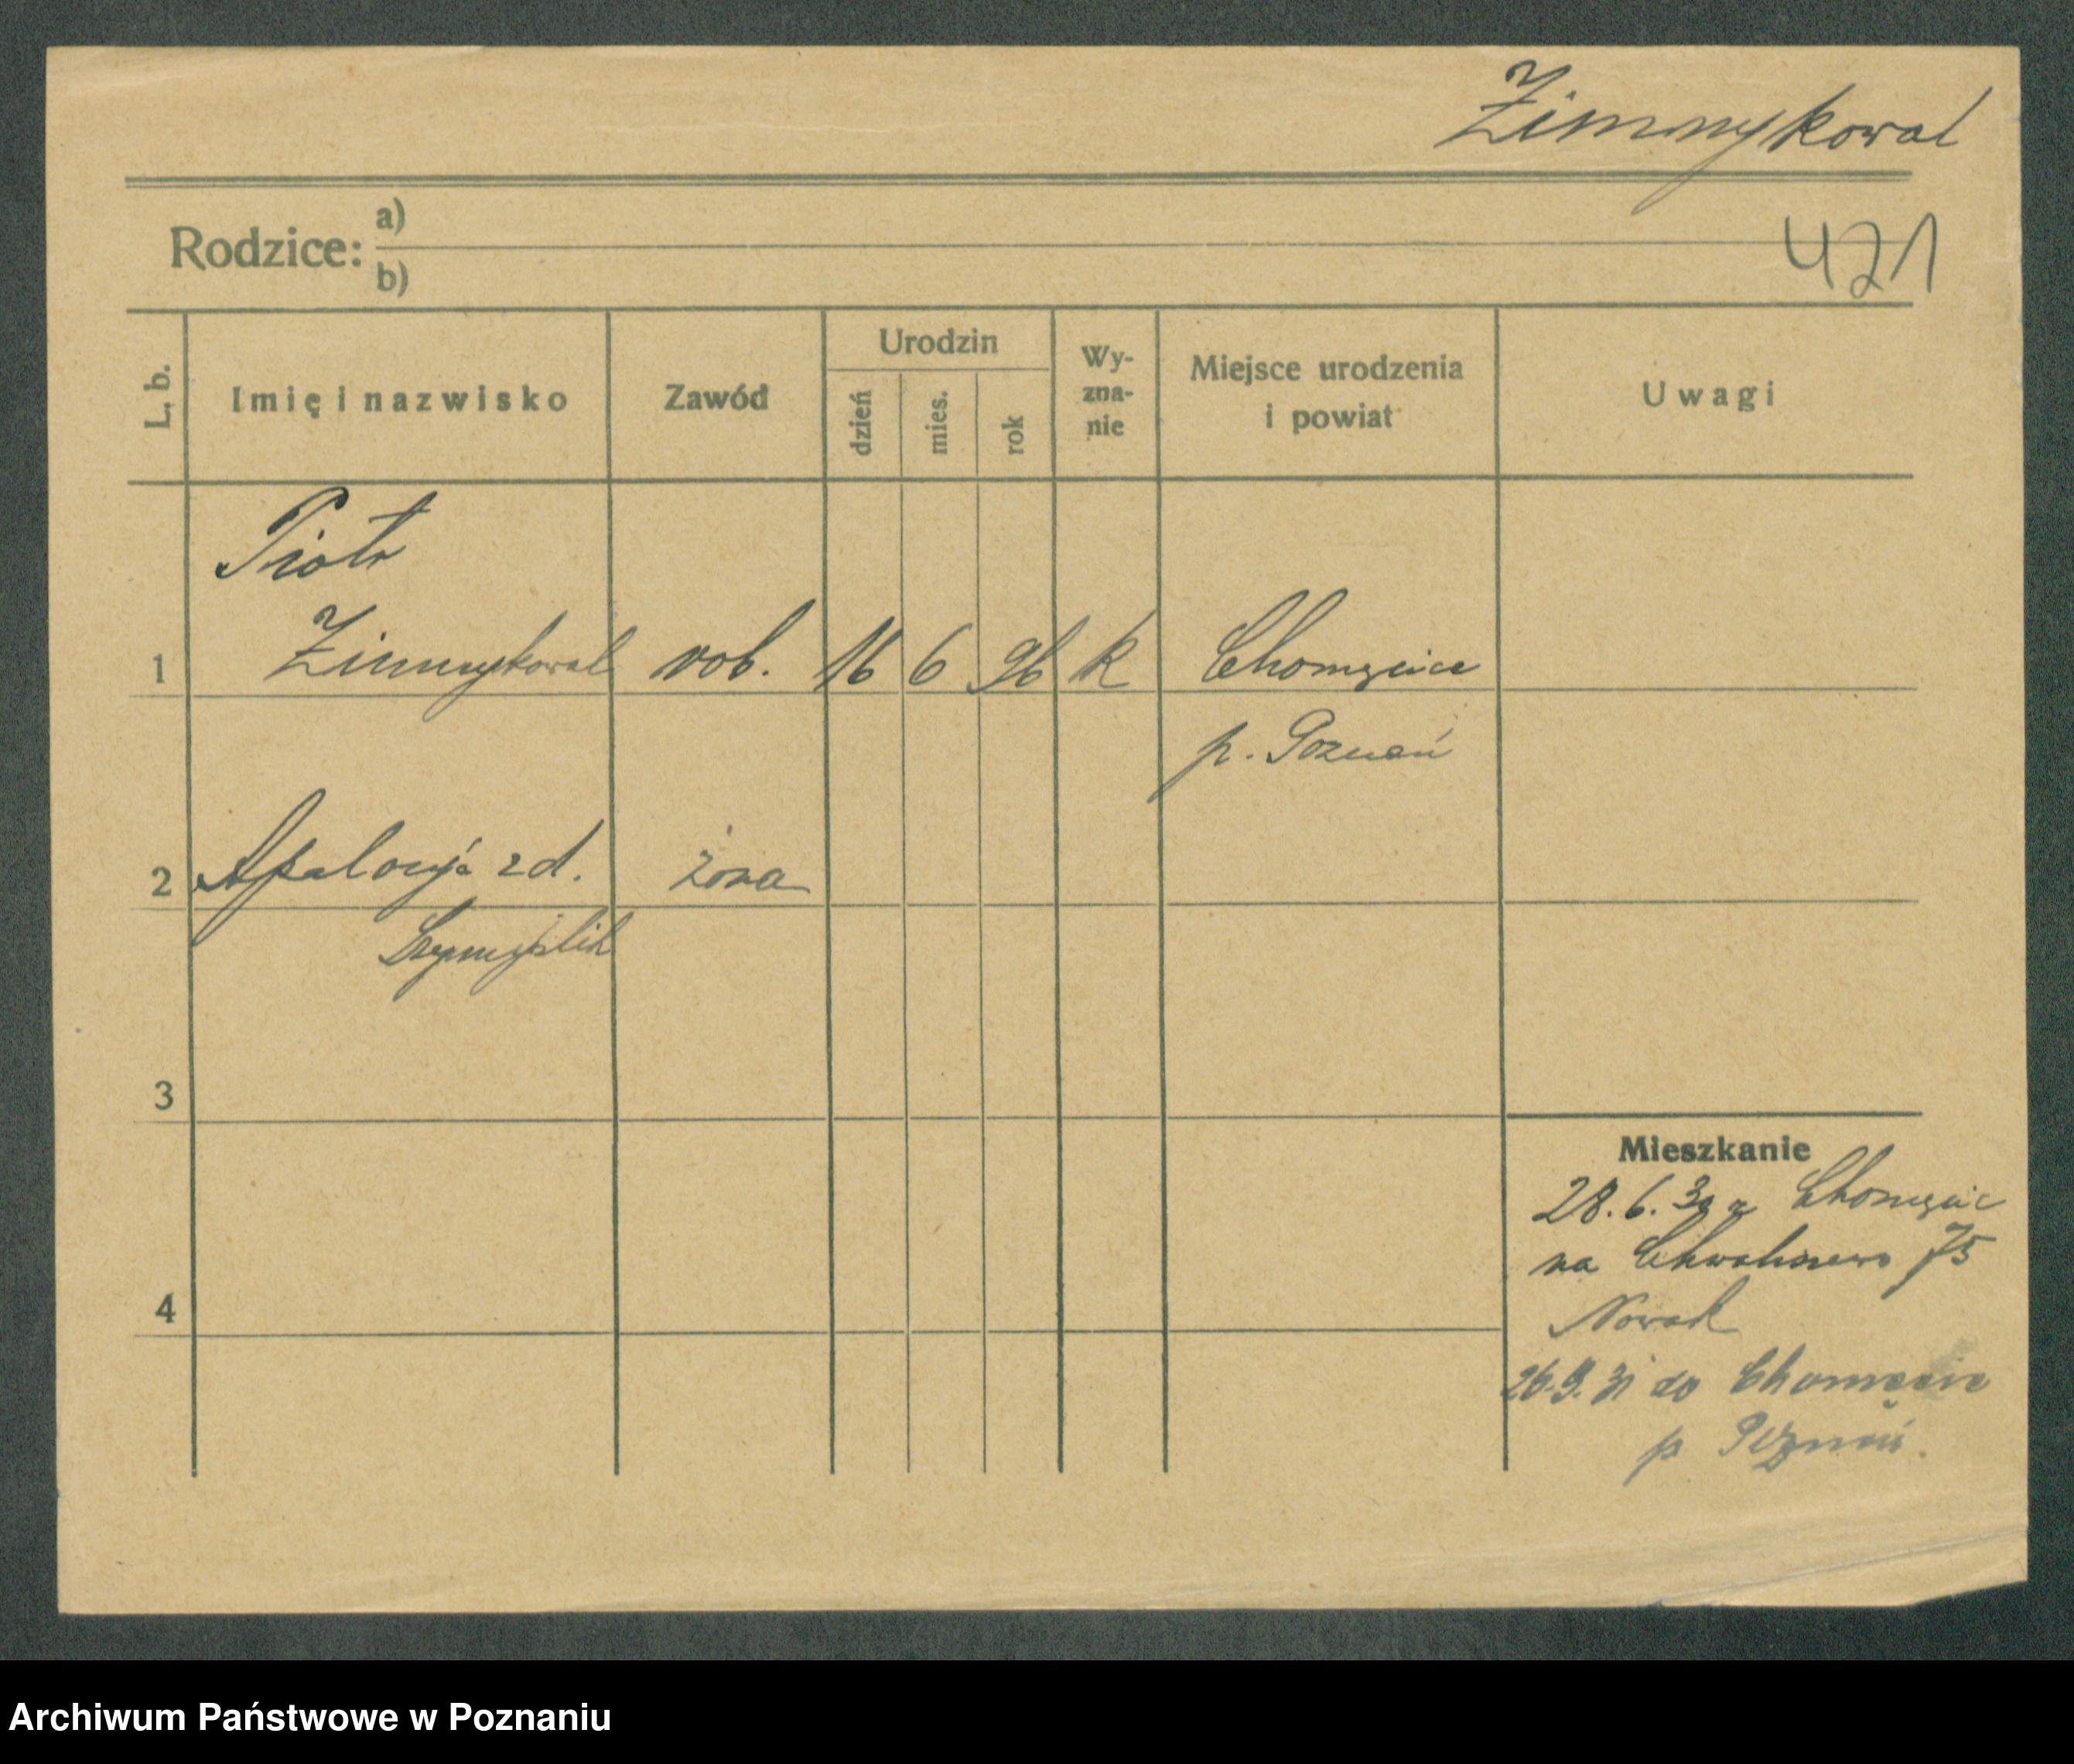 Zimnykowal
Rodzice: a)
b)
421
L. b.
Imię i nazwisko
Zawód
Urodzin
dzień
mies.
rok
Wy-
zna-
nie
Miejsce urodzenia
i powiat
Uwagi
Piotr
1 Zimnykowal rob. 16 6 96 k Chomęcice
p. Poznań
2 Apolonja z d. żona
3
Mieszkanie
28.6.30 z Chomęcic
na Chwaliszewo 75
4
Nowak
26.9.31 do Chomęcic
p Poznań.
Archiwum Państwowe w Poznaniu